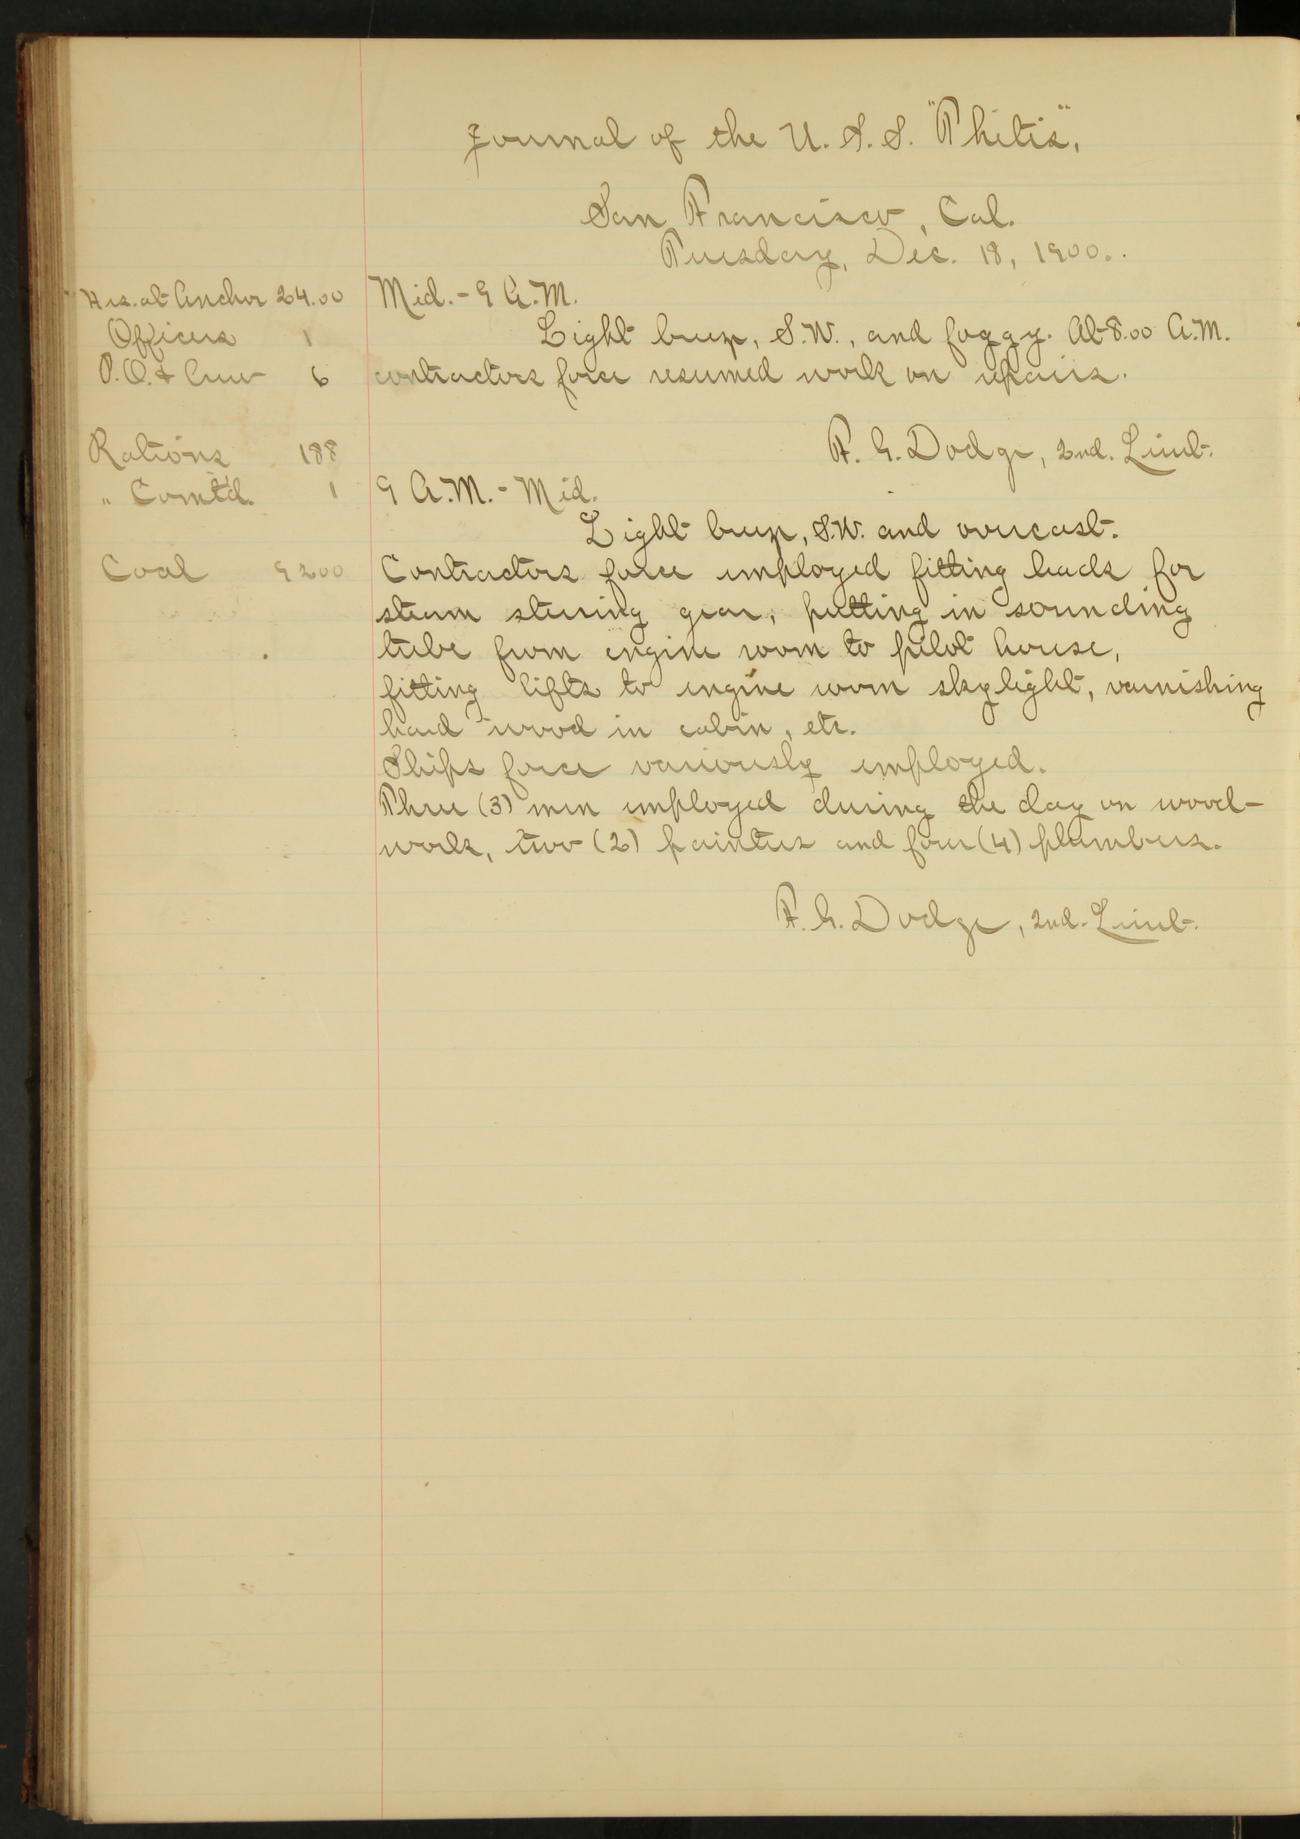 Journal of the U. S. S. "Thetis",
San Francisco, Cal.
Tuesday, Dec. 18, 1900.
Hrs. at Anchor 24.00
Officers 1
P.O. & Crew 6
Rations 188
" Comtd. 1
Coal 9200
Mid. - 9 A.M.
Light breeze, S.W., and foggy. At 8.00 A.M.
contractors force resumed work on repairs.
F. G. Dodge, 2nd. Lieut.
9 A.M. - Mid.
Light breeze, S.W. and overcast.
Contractors force employed fitting leads for
steam steering gear, putting in sounding
tube from engine room to pilot house,
fitting lifts to engine room skylight, varnishing
hard wood in cabin, etc.
Ships force variously employed.
Three (3) men employed during the day on wood-
work, two (2) painters and four (4) plumbers.
F. G. Dodge, 2nd. Lieut.